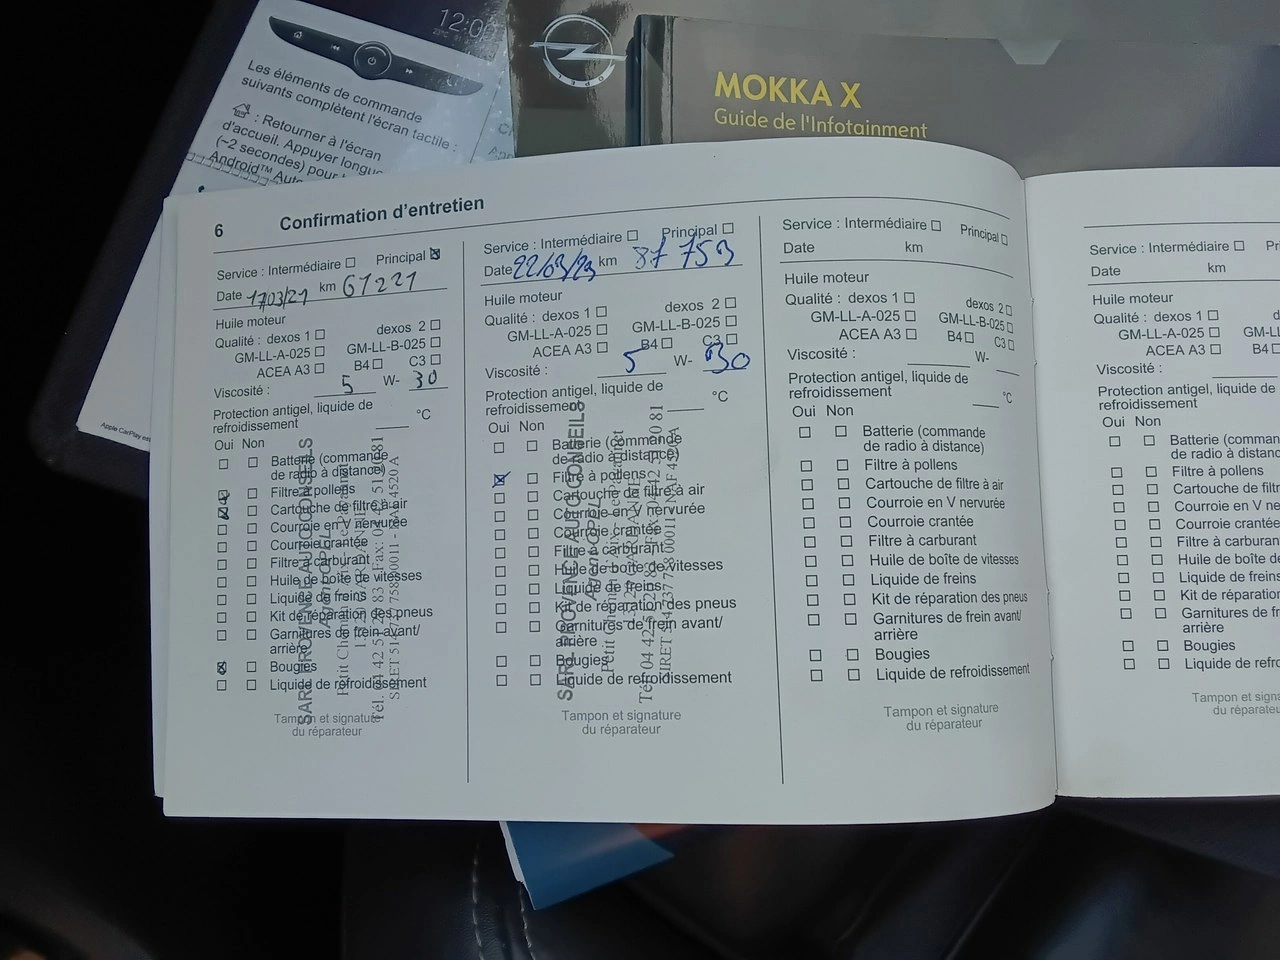 12:00
Les éléments de commande
suivants complètent l'écran tactile :
: Retourner à l'écran
d'accueil. Appuyer longue
(~2 secondes) pour
Android™ Auto
Apple CarPlay est
OPEL
MOKKA X
Guide de l'Infotainment
6 Confirmation d'entretien
Service : Intermédiaire Principal
Date 17/03/21 km 61221
Huile moteur
Qualité : dexos 1 dexos 2
GM-LL-A-025 GM-LL-B-025
ACEA A3 B4 C3
Viscosité : 5 W- 30
Protection antigel, liquide de
refroidissement °C
Oui Non
Batterie (commande
de radio à distance)
Filtre à pollens
Cartouche de filtre à air
Courroie en V nervurée
Courroie crantée
Filtre à carburant
Huile de boîte de vitesses
Liquide de freins
Kit de réparation des pneus
Garnitures de frein avant/
arrière
Bougies
Liquide de refroidissement
Tampon et signature
du réparateur
SARL PROVENCE AUTO CONSEILS
Agent OPEL
Service : Intermédiaire Principal
Date 22/03/23 km 87 753
Huile moteur
Qualité : dexos 1 dexos 2
GM-LL-A-025 GM-LL-B-025
ACEA A3 B4 C3
Viscosité : 5 W- 30
Protection antigel, liquide de
refroidissement °C
Oui Non
Batterie (commande
de radio à distance)
Filtre à pollens
Cartouche de filtre à air
Courroie en V nervurée
Courroie crantée
Filtre à carburant
Huile de boîte de vitesses
Liquide de freins
Kit de réparation des pneus
Garnitures de frein avant/
arrière
Bougies
Liquide de refroidissement
Tampon et signature
du réparateur
SARL PROVENCE AUTO CONSEILS
Agent OPEL
Service : Intermédiaire Principal
Date km
Huile moteur
Qualité : dexos 1 dexos 2
GM-LL-A-025 GM-LL-B-025
ACEA A3 B4 C3
Viscosité : W-
Protection antigel, liquide de
refroidissement °C
Oui Non
Batterie (commande
de radio à distance)
Filtre à pollens
Cartouche de filtre à air
Courroie en V nervurée
Courroie crantée
Filtre à carburant
Huile de boîte de vitesses
Liquide de freins
Kit de réparation des pneus
Garnitures de frein avant/
arrière
Bougies
Liquide de refroidissement
Tampon et signature
du réparateur
Service : Intermédiaire Pr
Date km
Huile moteur
Qualité : dexos 1 d
GM-LL-A-025 GM-L
ACEA A3 B4
Viscosité :
Protection antigel, liquide de
refroidissement
Oui Non
Batterie (comman
de radio à distance
Filtre à pollens
Cartouche de filtre
Courroie en V ne
Courroie crantée
Filtre à carburan
Huile de boîte de
Liquide de freins
Kit de réparation
Garnitures de fr
arrière
Bougies
Liquide de refro
Tampon et signa
du répara